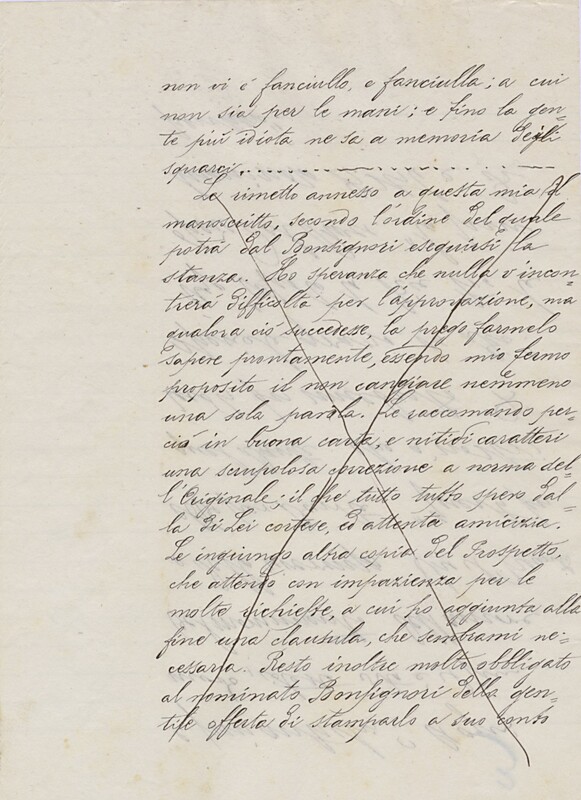 non vi é fanciullo, e fanciulla; a cui
non sia per le mani; e fino la gen=
te piú idiota ne sa a memoria degli
squarci.
Le rimetto annesso a questa mia il
manoscritto, secondo l'ordine del quale
potrà dal Bonsignori eseguirsi la
stanza. Ho speranza che nulla v'incon=
trerà difficoltá per l'approvazione, ma
qualora ció succedesse, la prego farmelo
sapere prontamente, essendo mio fermo
proposito il non cangiare nemmeno
una sola parola. Le raccomando per=
ció in buona carta, e nitidi caratteri
una scrupolosa correzione a norma del=
l'Originale; il che tutto tutto spero dal=
la di Lei cortese, ed attenta amicizia.
Le ingiungo altra copia del Prospetto,
che attendo con impazienza per le
molte richieste, a cui ho aggiunta alla
fine una clausula, che sembrami ne=
cessaria. Resto inoltre molto obbligato
al nominato Bonsignori della gen=
tile offerta di stamparlo a suo conto